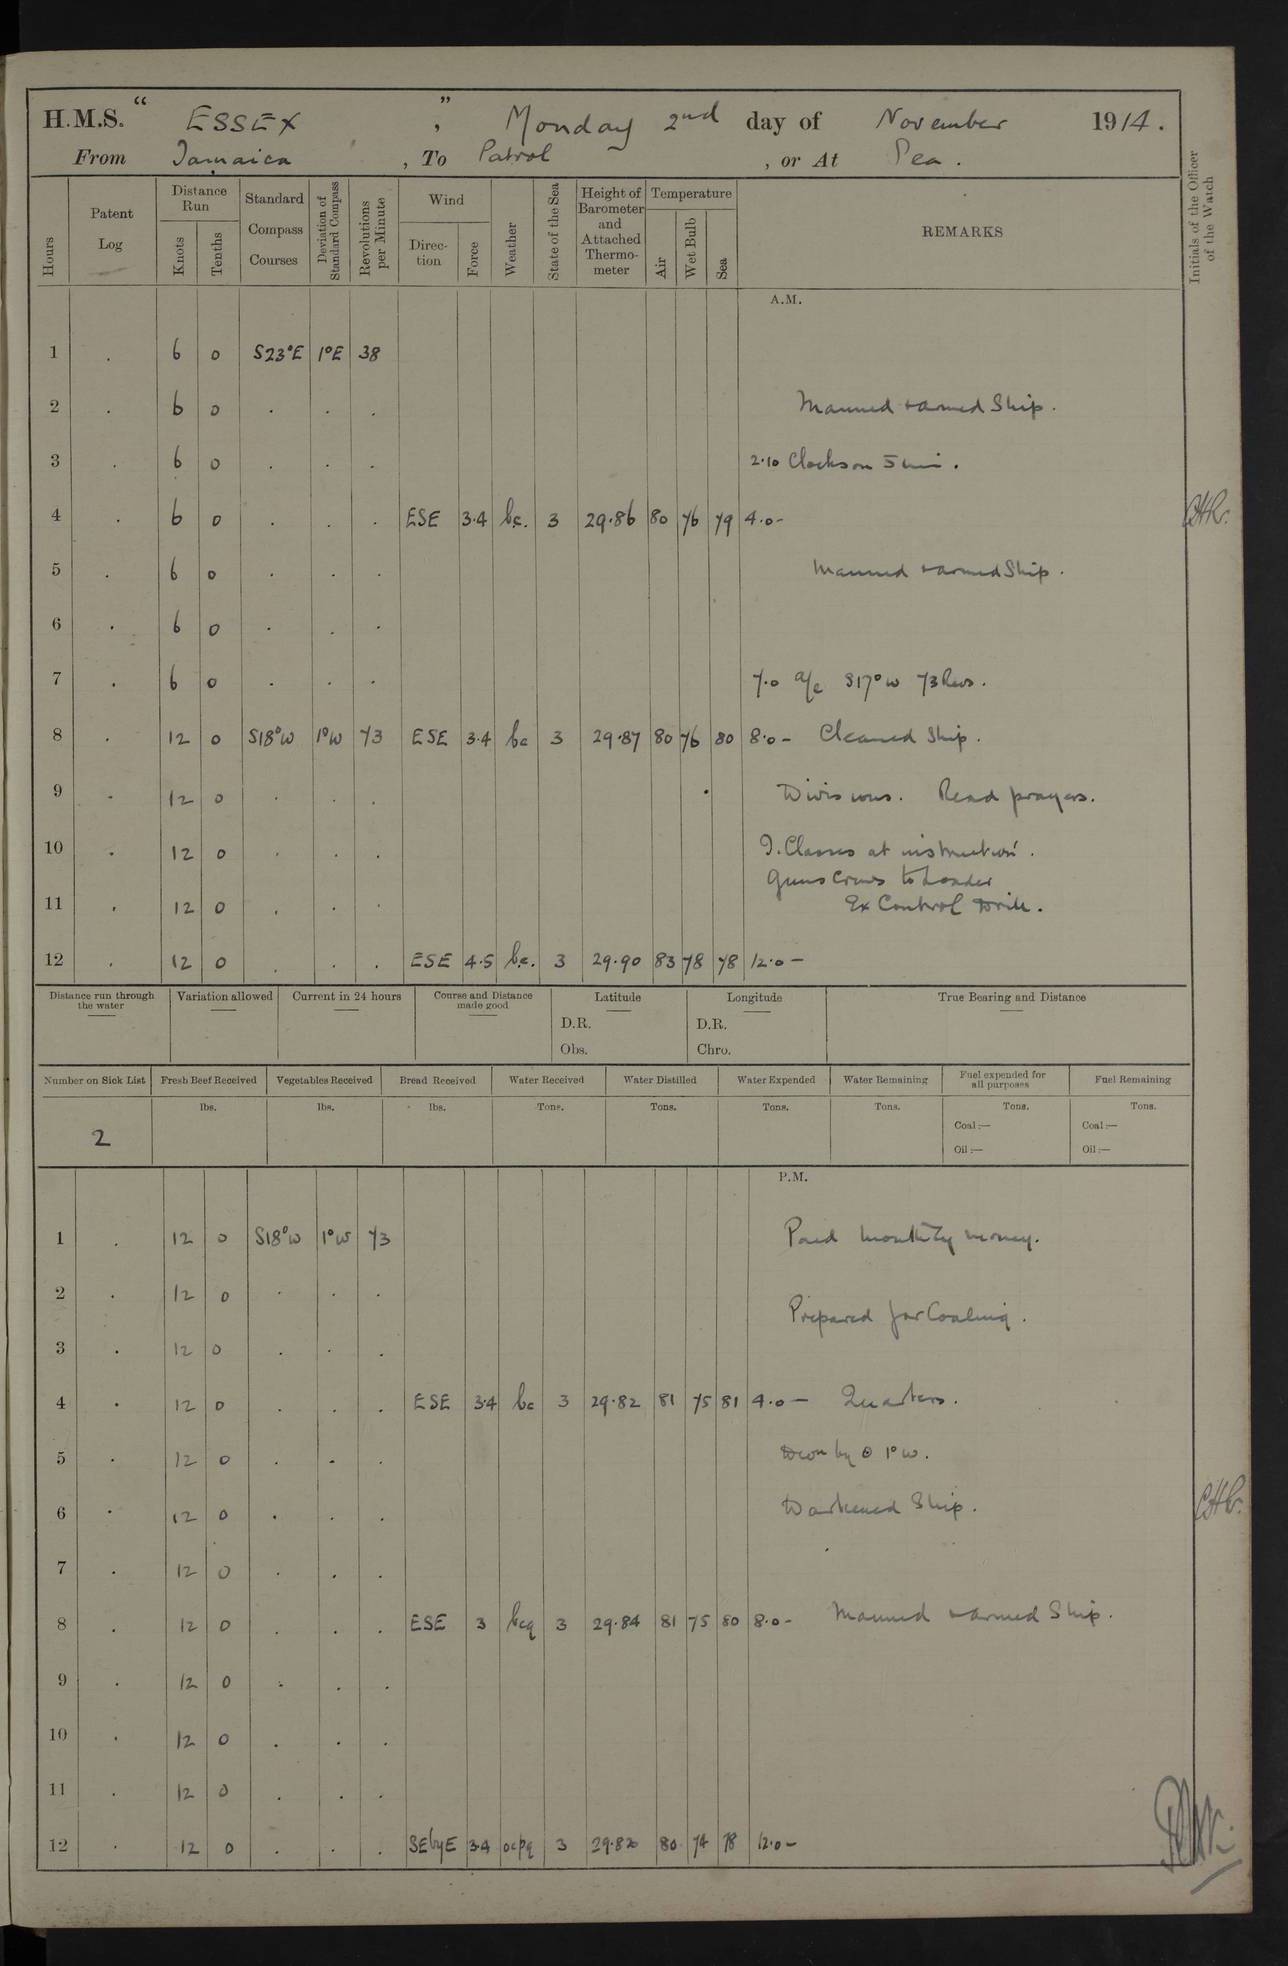 H.M.S. “ ESSEX ” , Monday 2nd day of November 1914.
From Jamaica , To Patrol , or At Sea .
Hours
Patent Log
Distance Run
Knots
Tenths
Standard Compass Courses
Deviation of Standard Compass
Revolutions per Minute
Wind
Direc-tion
Force
Weather
State of the Sea
Height of Barometer and Attached Thermo-meter
Temperature
Air
Wet Bulb
Sea
REMARKS
Initials of the Officer of the Watch
A.M.
1 . 6 0 S23°E 1°E 38
2 . 6 0 . . . Manned + armed Ship.
3 . 6 0 . . . 2.10 Clocks on 5 min.
4 . 6 0 . . . ESE 3.4 bc. 3 29.86 80 76 79 4.0-
5 . 6 0 . . . Manned + armed Ship.
6 . 6 0 . . .
7 . 6 0 . . . 7.0 a/c S17°W 73 Revs.
8 . 12 0 S18°W 1°W 73 ESE 3.4 bc 3 29.87 80 76 80 8.0- Cleaned Ship.
9 . 12 0 . . . Divisions. Read prayers.
10 . 12 0 . . . Classes at instruction.
Guns Crews to Loader
11 . 12 0 . . . Ex Control Drill.
12 . 12 0 . . . ESE 4.5 b.c. 3 29.90 83 78 78 12.0-
Distance run through the water
Variation allowed
Current in 24 hours
Course and Distance made good
Latitude
D.R.
Obs.
Longitude
D.R.
Chro.
True Bearing and Distance
Number on Sick List Fresh Beef Received Vegetables Received Bread Received Water Received Water Distilled Water Expended Water Remaining Fuel expended for all purposes Fuel Remaining
lbs. lbs. lbs. Tons. Tons. Tons. Tons. Tons. Tons.
2 Coal:— Coal:—
Oil:— Oil:—
P.M.
1 . 12 0 S18°W 1°W 73 Paid monthly money.
2 . 12 0 . . .
Prepared for Coaling.
3 . 12 0 . . .
4 . 12 0 . . . ESE 3.4 bc 3 29.82 81 75 81 4.0- Quarters.
5 . 12 0 . . . Devn by ☉ 1°W.
6 . 12 0 . . . Darkened Ship.
7 . 12 0 . . .
8 . 12 0 . . . ESE 3 bcq 3 29.84 81 75 80 8.0- Manned + armed Ship.
9 . 12 0 . . .
10 . 12 0 . . .
11 . 12 0 . . .
12 . 12 0 . . . SEbyE 3.4 ocpq 3 29.82 80 74 78 12.0-